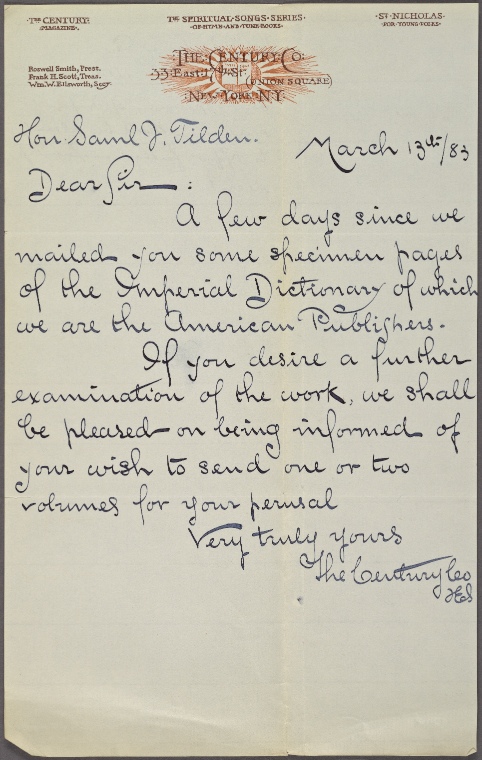 The Century Magazine.
The Spiritual Songs Series of Hymn and Tune Books.
St. Nicholas for Young Folks.
Roswell Smith, Prest.
Frank H. Scott, Treas.
Wm. W. Ellsworth, Secy.
The Century Co.
33 East 17th St. (Union Square)
New York N.Y.
Hon. Saml J. Tilden.
March 13th/83
Dear Sir:
A few days since we
mailed you some specimen pages
of the Imperial Dictionary of which
we are the American Publishers.
If you desire a further
examination of the work, we shall
be pleased on being informed of
your wish to send one or two
volumes for your perusal
Very truly yours
The Century Co